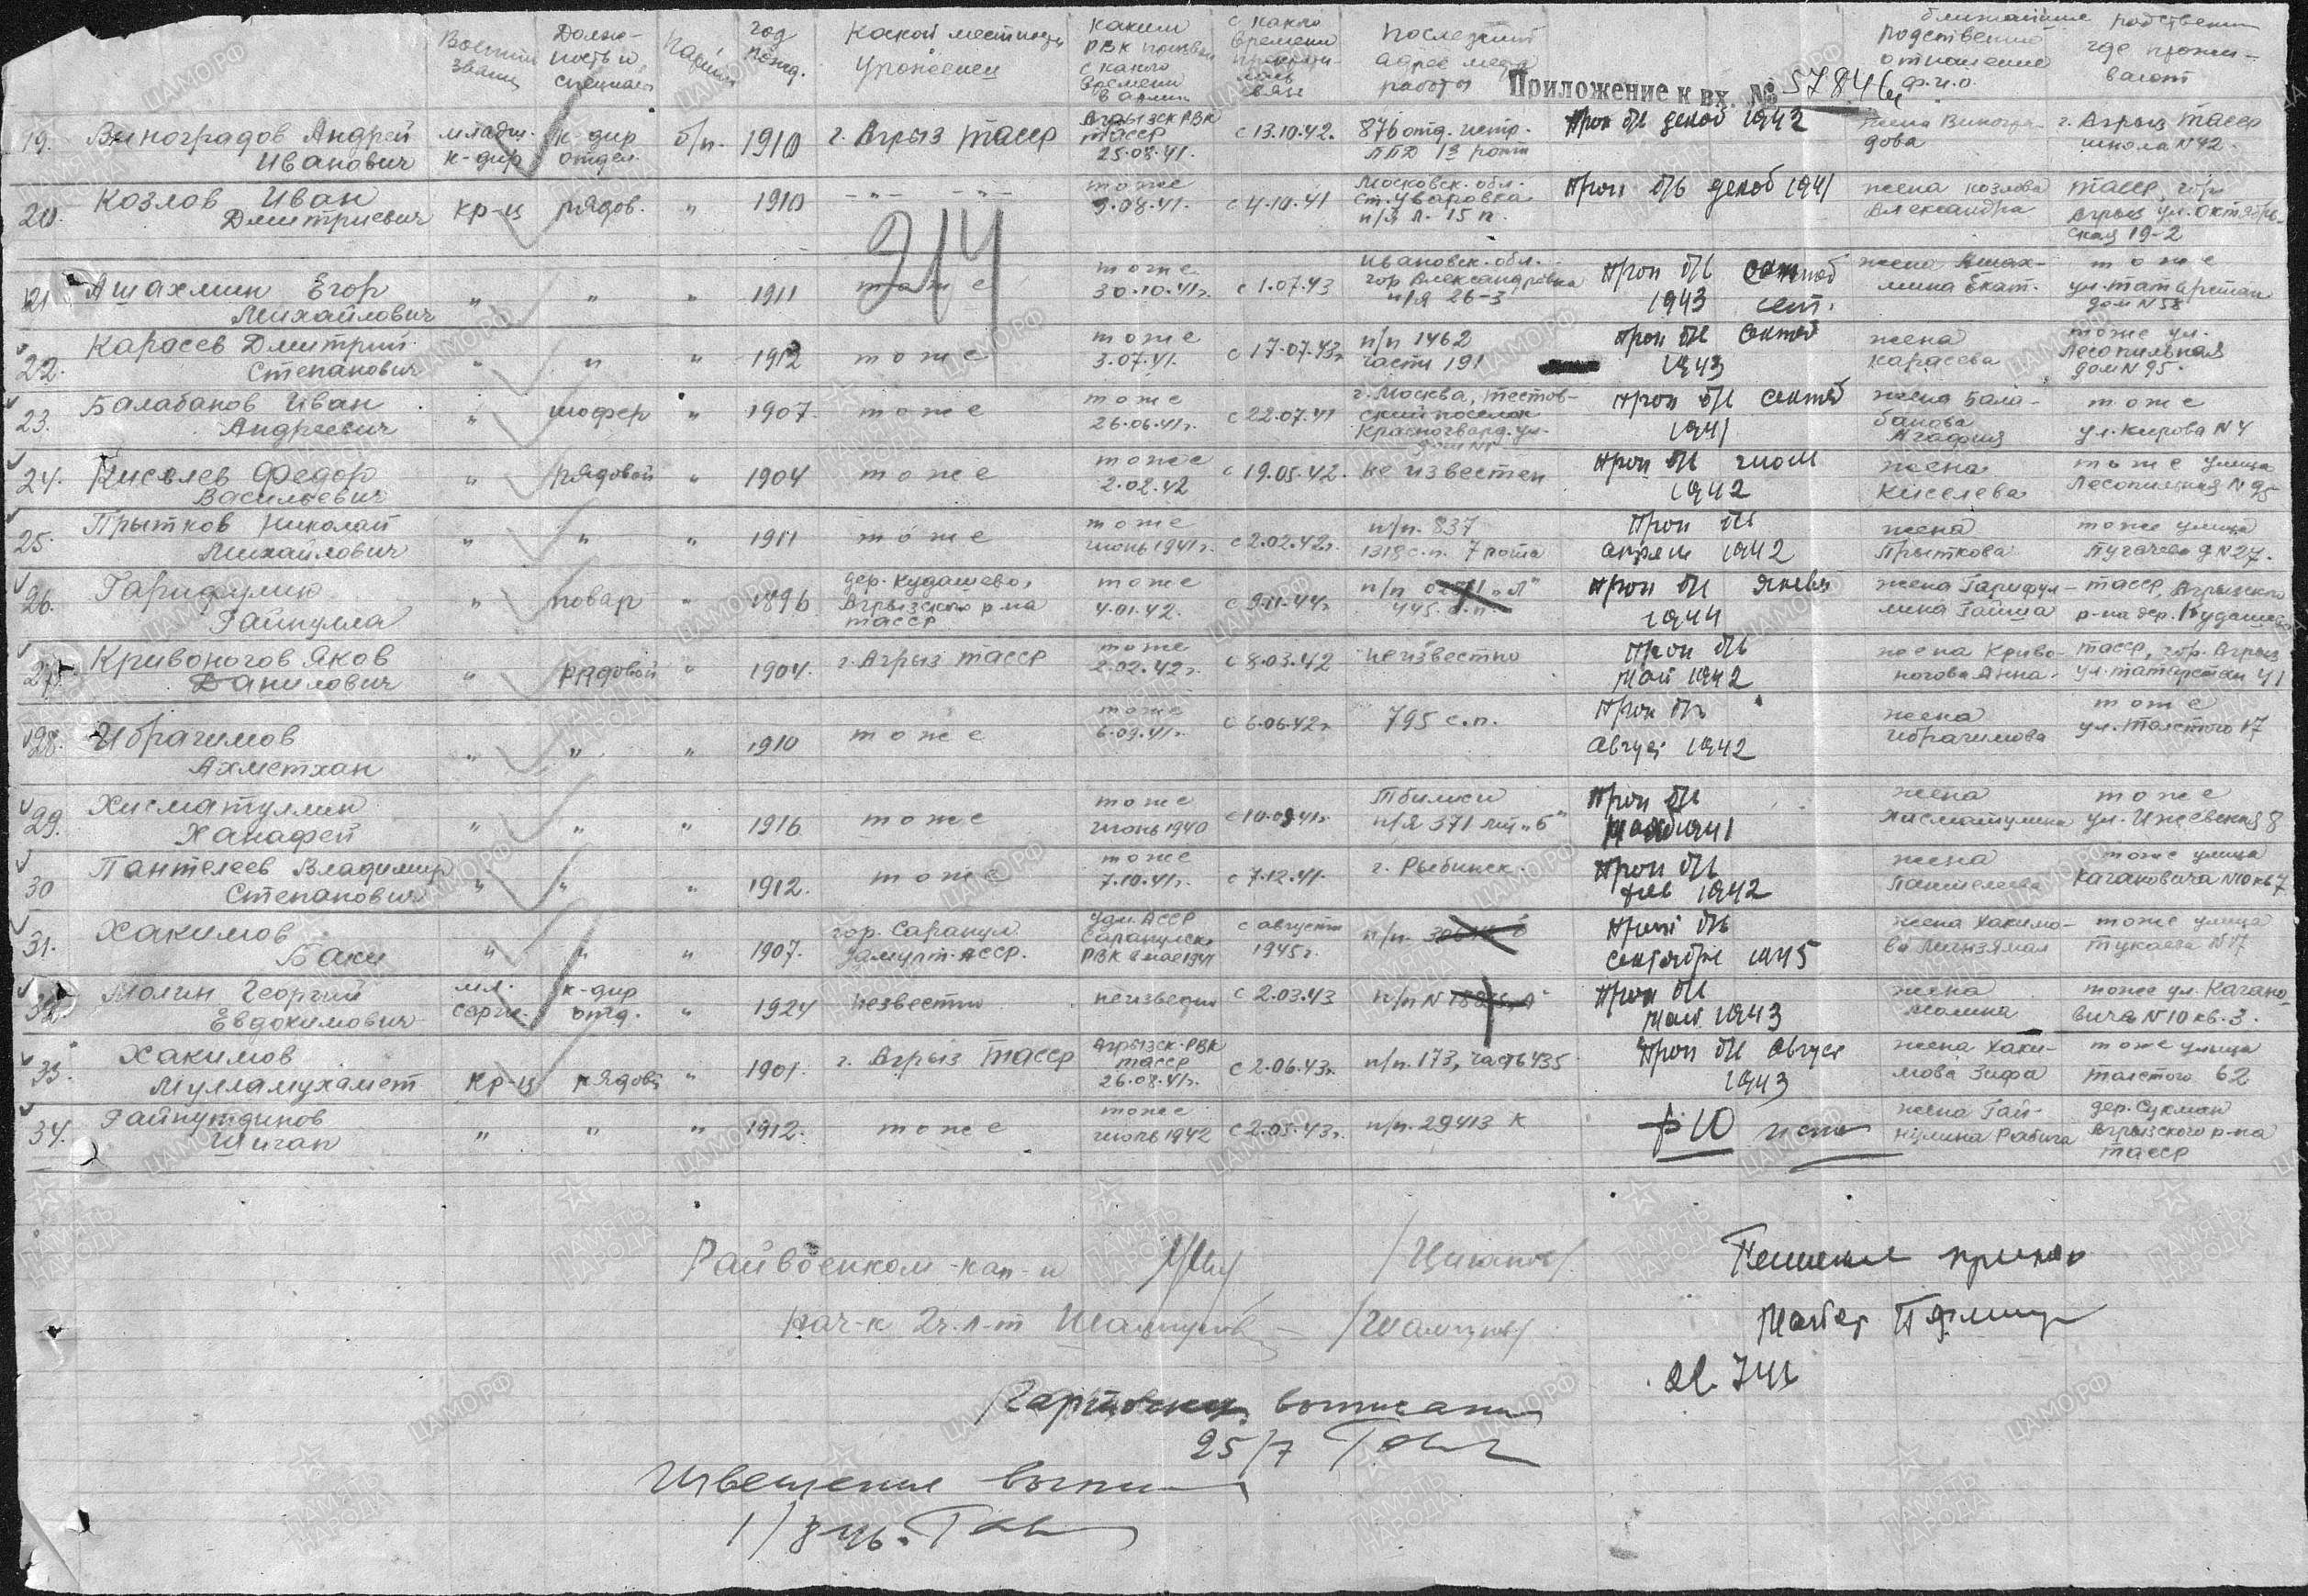 Воинск. звание
Долж-
ность и
специальн.
Партийн.
год
рожд.
Какой местности
уроженец
Каким
РВК призван
с какого
времени
в армии
с какого
времени
прекрати-
лась
связь
Последний
адрес места
работы
Приложение к вх. № 57846с
ближайшие родствен
родственные
отношение
ф.и.о.
где прожи-
вают
19. Виноградов Андрей Иванович младш. к-дир к-дир отдел. б/п. 1910 г. Агрыз ТАССР Агрызск РВК ТАССР 25.08.41. с 13.10.42. 876 отд. истр. ППД 13 рота Проп б/и декаб 1942 жена Виногра-дова г. Агрыз ТАССР школа N 42.
20. Козлов Иван Дмитриевич кр-ц рядов. " 1910 -"- -"- тоже 9.08.41. с 4.10.41 Московск. обл. ст. Уваровка п/я л. 15 п. Проп б/ь декаб 1941 жена Козлова Александра ТАССР, гор. Агрыз ул. Октябрь-ская 19-2
214
21. Ашахмин Егор Михайлович " " " 1911 тоже тоже 30.10.41г. с 1.07.43 Ивановск. обл. гор Александровка п/я 26-3 Проп б/ь сентяб 1943 сент. жена Ашах-мина Екат. тоже ул. Татарстан дом N 58
22. Карасев Дмитрий Степанович " " " 1912 тоже тоже 3.07.41. с 17.07.43г. п/п 1462 части 191 Проп б/и сентяб 1943 жена Карасева тоже ул. Лесопильная дом N 95.
23. Балабанов Иван Андреевич " шофер " 1907. тоже тоже 26.06.41г. с 22.07.41 г. Москва, Тестов-ский поселок Красногвард. ул. Проп б/и сентяб 1941 жена Бала-банова Агафия тоже ул. Кирова N 4
24. Киселев Федор Васильевич " рядовой " 1904 тоже тоже 2.02.42 с 19.05.42. не известен Проп б/и июль 1942 жена Киселева тоже улица Лесопильная N 95
25. Прытков Николай Михайлович " " " 1911 тоже тоже июнь 1941г. с 2.02.42г. п/п. 837 1318 с.п. 7 рота Проп б/и апрель 1942 жена Прыткова тоже улица Пугачева д N 27.
26. Гарифулин Гайнулла " повар " 1896 дер. Кудашево, Агрызского р-на ТАССР тоже 4.01.42. п/п 445 с.п. Проп б/и январь 1944 жена Гарифул-лина Гайша ТАССР, Агрызского р-на дер. Кудашево
27. Кривоногов Яков Данилович " рядовой " 1904. г. Агрыз ТАССР тоже 2.02.42г. с 8.03.42 неизвестно Проп б/ь май 1942 жена Криво-ногова Анна. ТАССР, гор. Агрыз ул. Татарстан 41
28. Ибрагимов Ахметхан " " " 1910 тоже тоже 6.09.41г. с 6.06.42г. 795 с.п. Проп б/ь август 1942 жена Ибрагимова тоже ул. Толстого 17
29. Хисматуллин Ханафей " " " 1916 тоже тоже июнь 1940 с 10.09.41г. Тбилиси п/я 371 лит „б" Проп б/и 1941 жена Хисматулина тоже ул. Ижевская 8
30 Пантелеев Владимир Степанович " " " 1912. тоже тоже 7.10.41г. с 7.12.41. г. Рыбинск. Проп б/ь фев 1942 жена Пантелеева тоже улица Кагановича N 10 кв 7
31. Хакимов Баки " " " 1907. гор. Сарапул Удмурт. АССР. Удм. АССР Сарапулск. РВК в мае 1941 с августа 1945г. п/п. Проп б/ь сентябре 1945 жена Хакимо-ва Минзямал тоже улица Тукаева N 17
32. Молин Георгий Евдокимович мл. серж. к-дир отд. " 1924 незвестно неизвестно с 2.03.43 п/п N Проп б/и май 1943 жена Молина тоже ул. Кагано-вича N 10 кв. 3.
33. Хакимов Мулламухамет кр-ц рядовй " 1901. г. Агрыз ТАССР Агрызск. РВК ТАССР 26.08.41г. с 2.06.43г. п/п. 173, часть 435 Проп б/и август 1943 жена Хаки-мова Зифа тоже улица Толстого 62
34. Гайнутдинов Шиган " " " 1912. тоже тоже июль 1942 с 2.05.43г. п/п. 29413 К ф 10 жена Гай-нулина Рабига дер. Сукман Агрызского р-на ТАССР
Райвоенком -кап-н
Нач-к 2ч. л-т Шамсунов /Шамсунов/
Решение принял
Майор
Карточки выписаны
25/7
Извещение выпис
1/8 46.